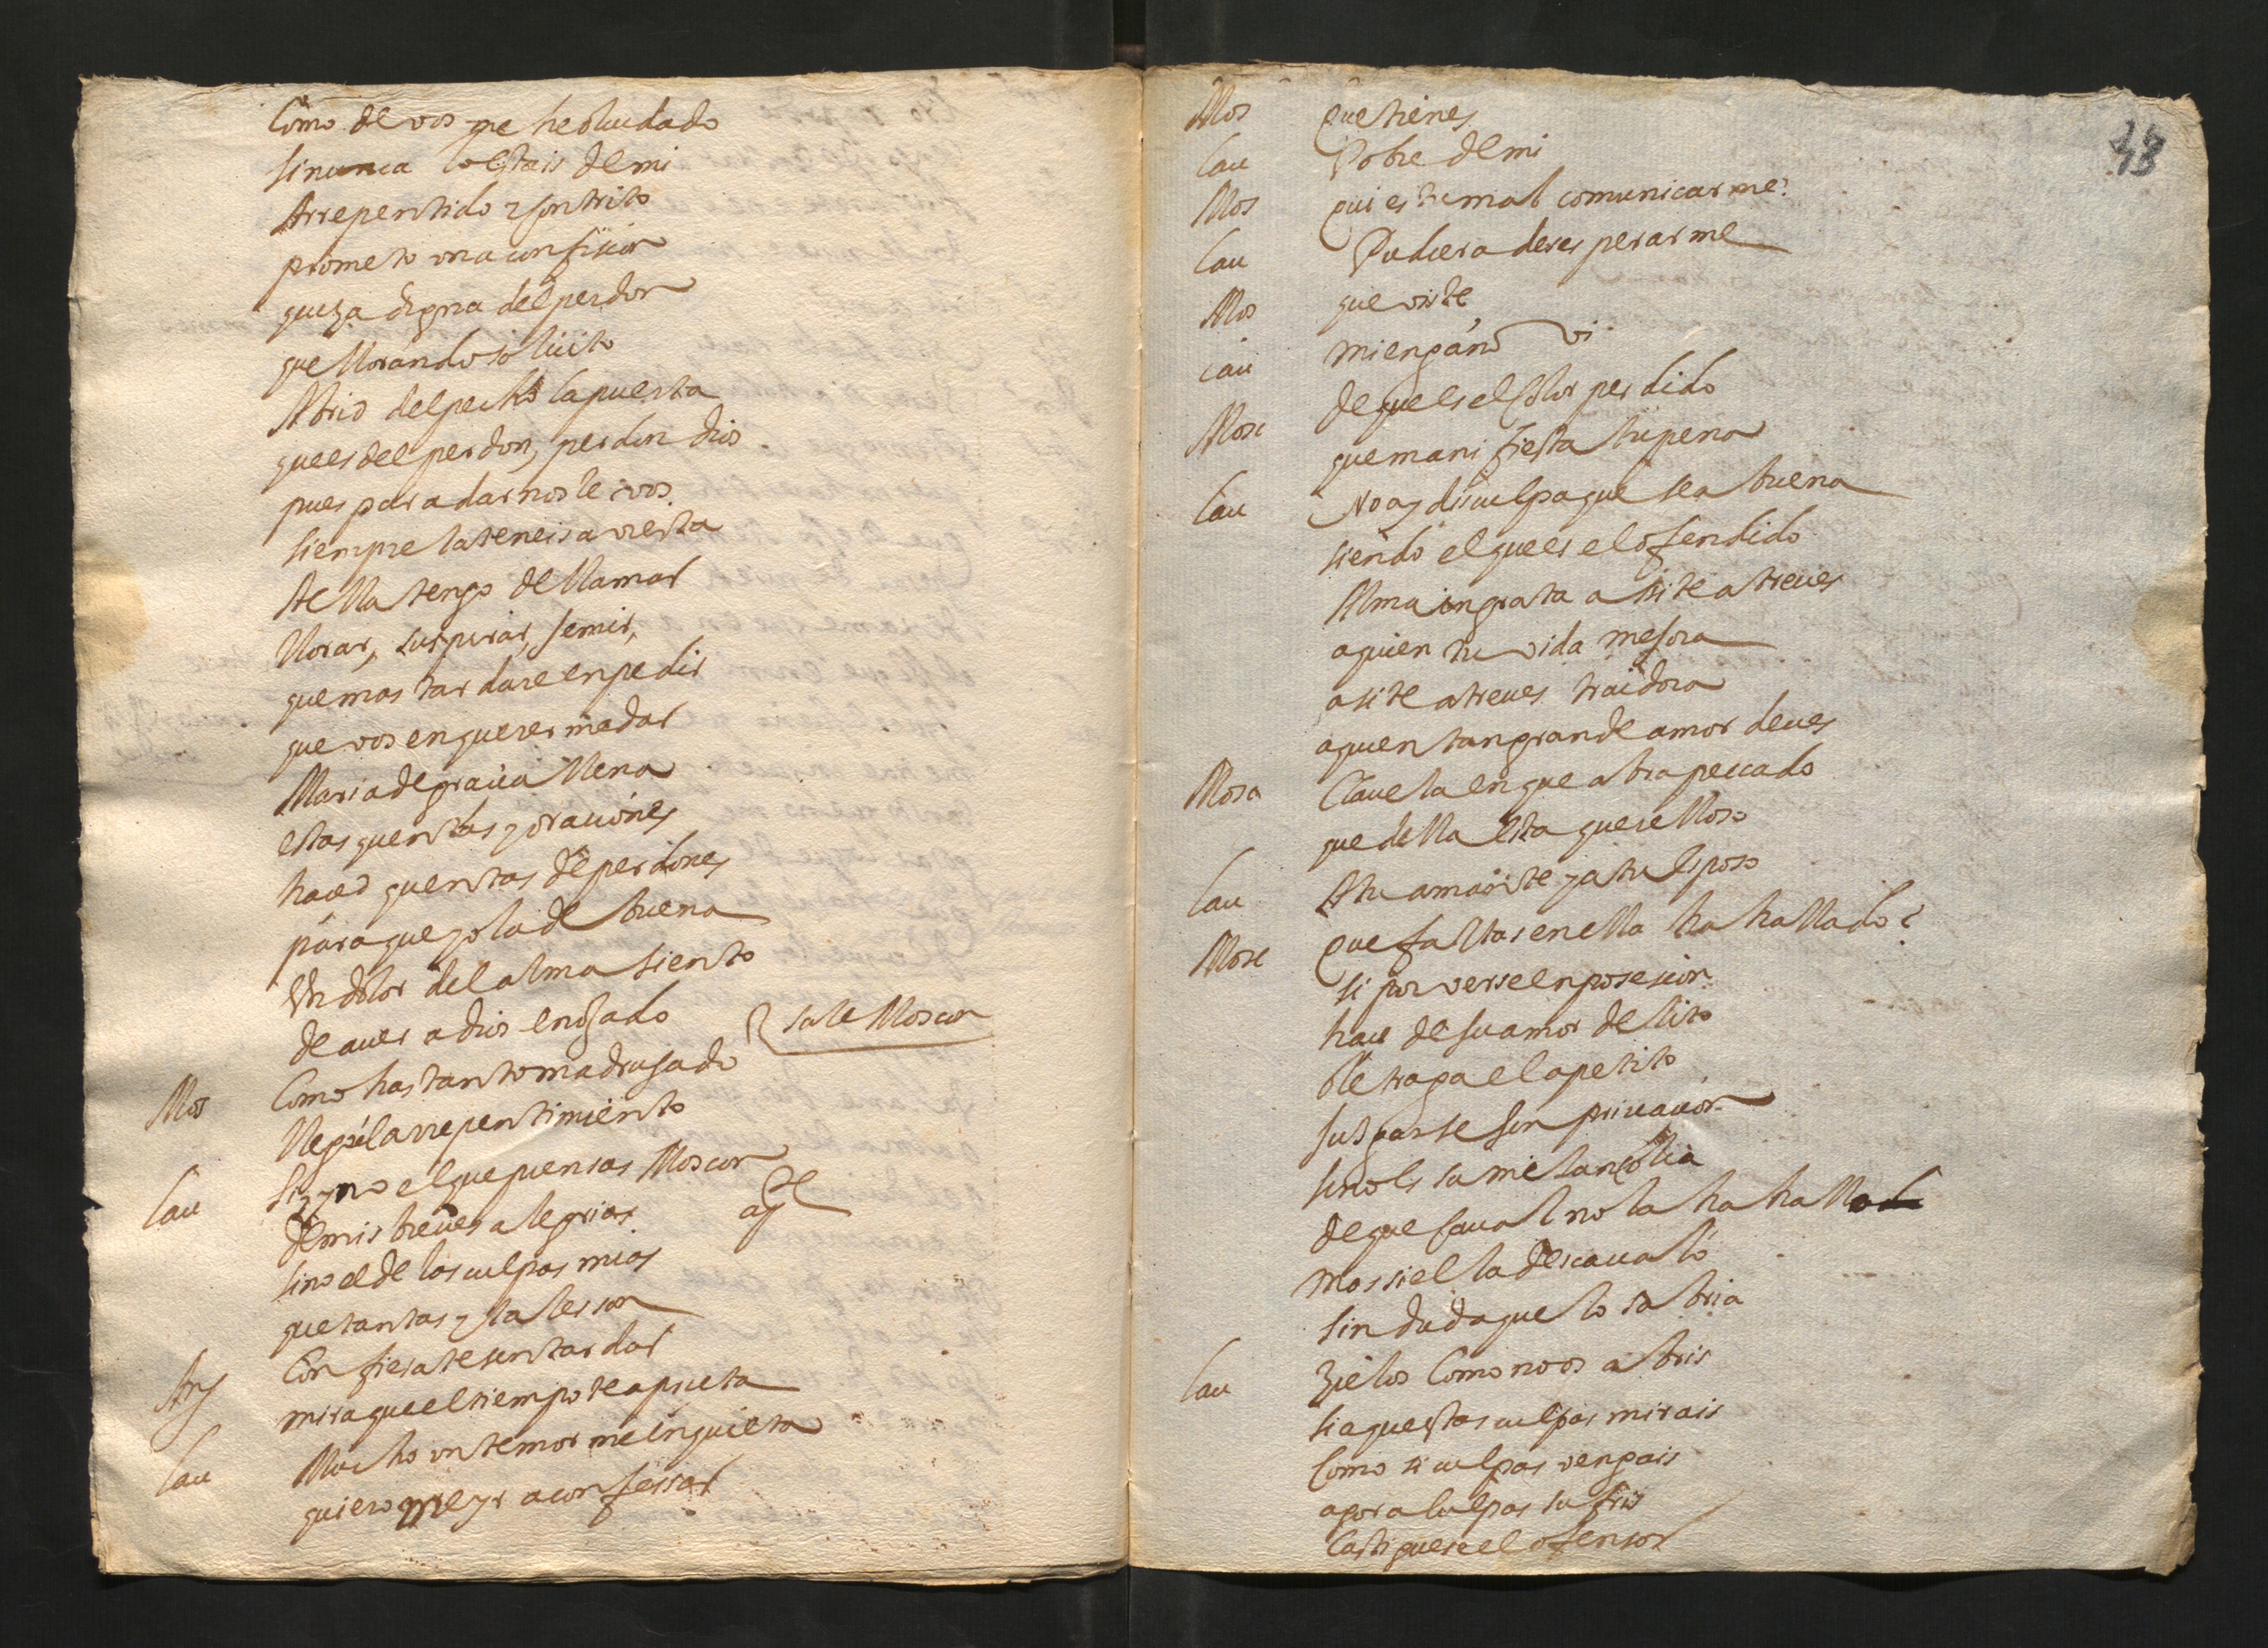 Como de vos me he oluidado
si nunca lo estais de mi
Arrepentido y contrito
prometo una confision
que sea digna del perdon
que llorando soliçito
Abrid del pecho la puerta
que es del perdon, perdon dios
pues para darnosle vos
siempre la teneis avierta
A ella tengo de llamar
llorar, suspirar, jemir,
que mas tardare en pedir
que vos en querer me dar
Maria de graçia llena
estas quentas y oraçiones
haced quentas de perdones
para que yo la de buena
Un dolor del alma siento
de auer a dios enojado
sale Moscon
Mos Como has tanto madrugado
llego el arrepentimiento
Lau Si, y no el que piensas Moscon
de mis breues alegrias apte
sino el de las culpas mias
que tantas y tales son
Ang Confiesate sin tardar
mira que el tiempo te aprieta
Lau Mucho un temor me inquieta
quierome yr a confessar
48
Mos Que tienes
Lau Pobre de mi
Mos quies tu mal comunicarme?
Lau Pudiera desesperarme
Mos que viste
Lau mi engaño vi
Mosc de que es el color perdido
que manifiesta tu pena
Lau No ay disculpa que sea buena
siendo el que es el ofendido
Alma ingrata asi te atreues
a quien tu vida mejora
asi te atreues traidora
a quien tan grande amor deues
Mosca Claue la en que abra peccado
que della esta querelloso
Lau A tu amante y a tu esposo
Mosc Que faltas en ella ha hallado?
si por verse en posesion
hace de su amor delito
o le traga el apetito
juzgarse sin priuaçion
sino es su melancolia
de que caual no la ha hallado
mas si el la descaualó
sin duda que lo sabria
Lau Zielos Como no os abris
si aquestas culpas mirais
Como si culpas vengais
agora culpas sufris
Castiguese el ofensor